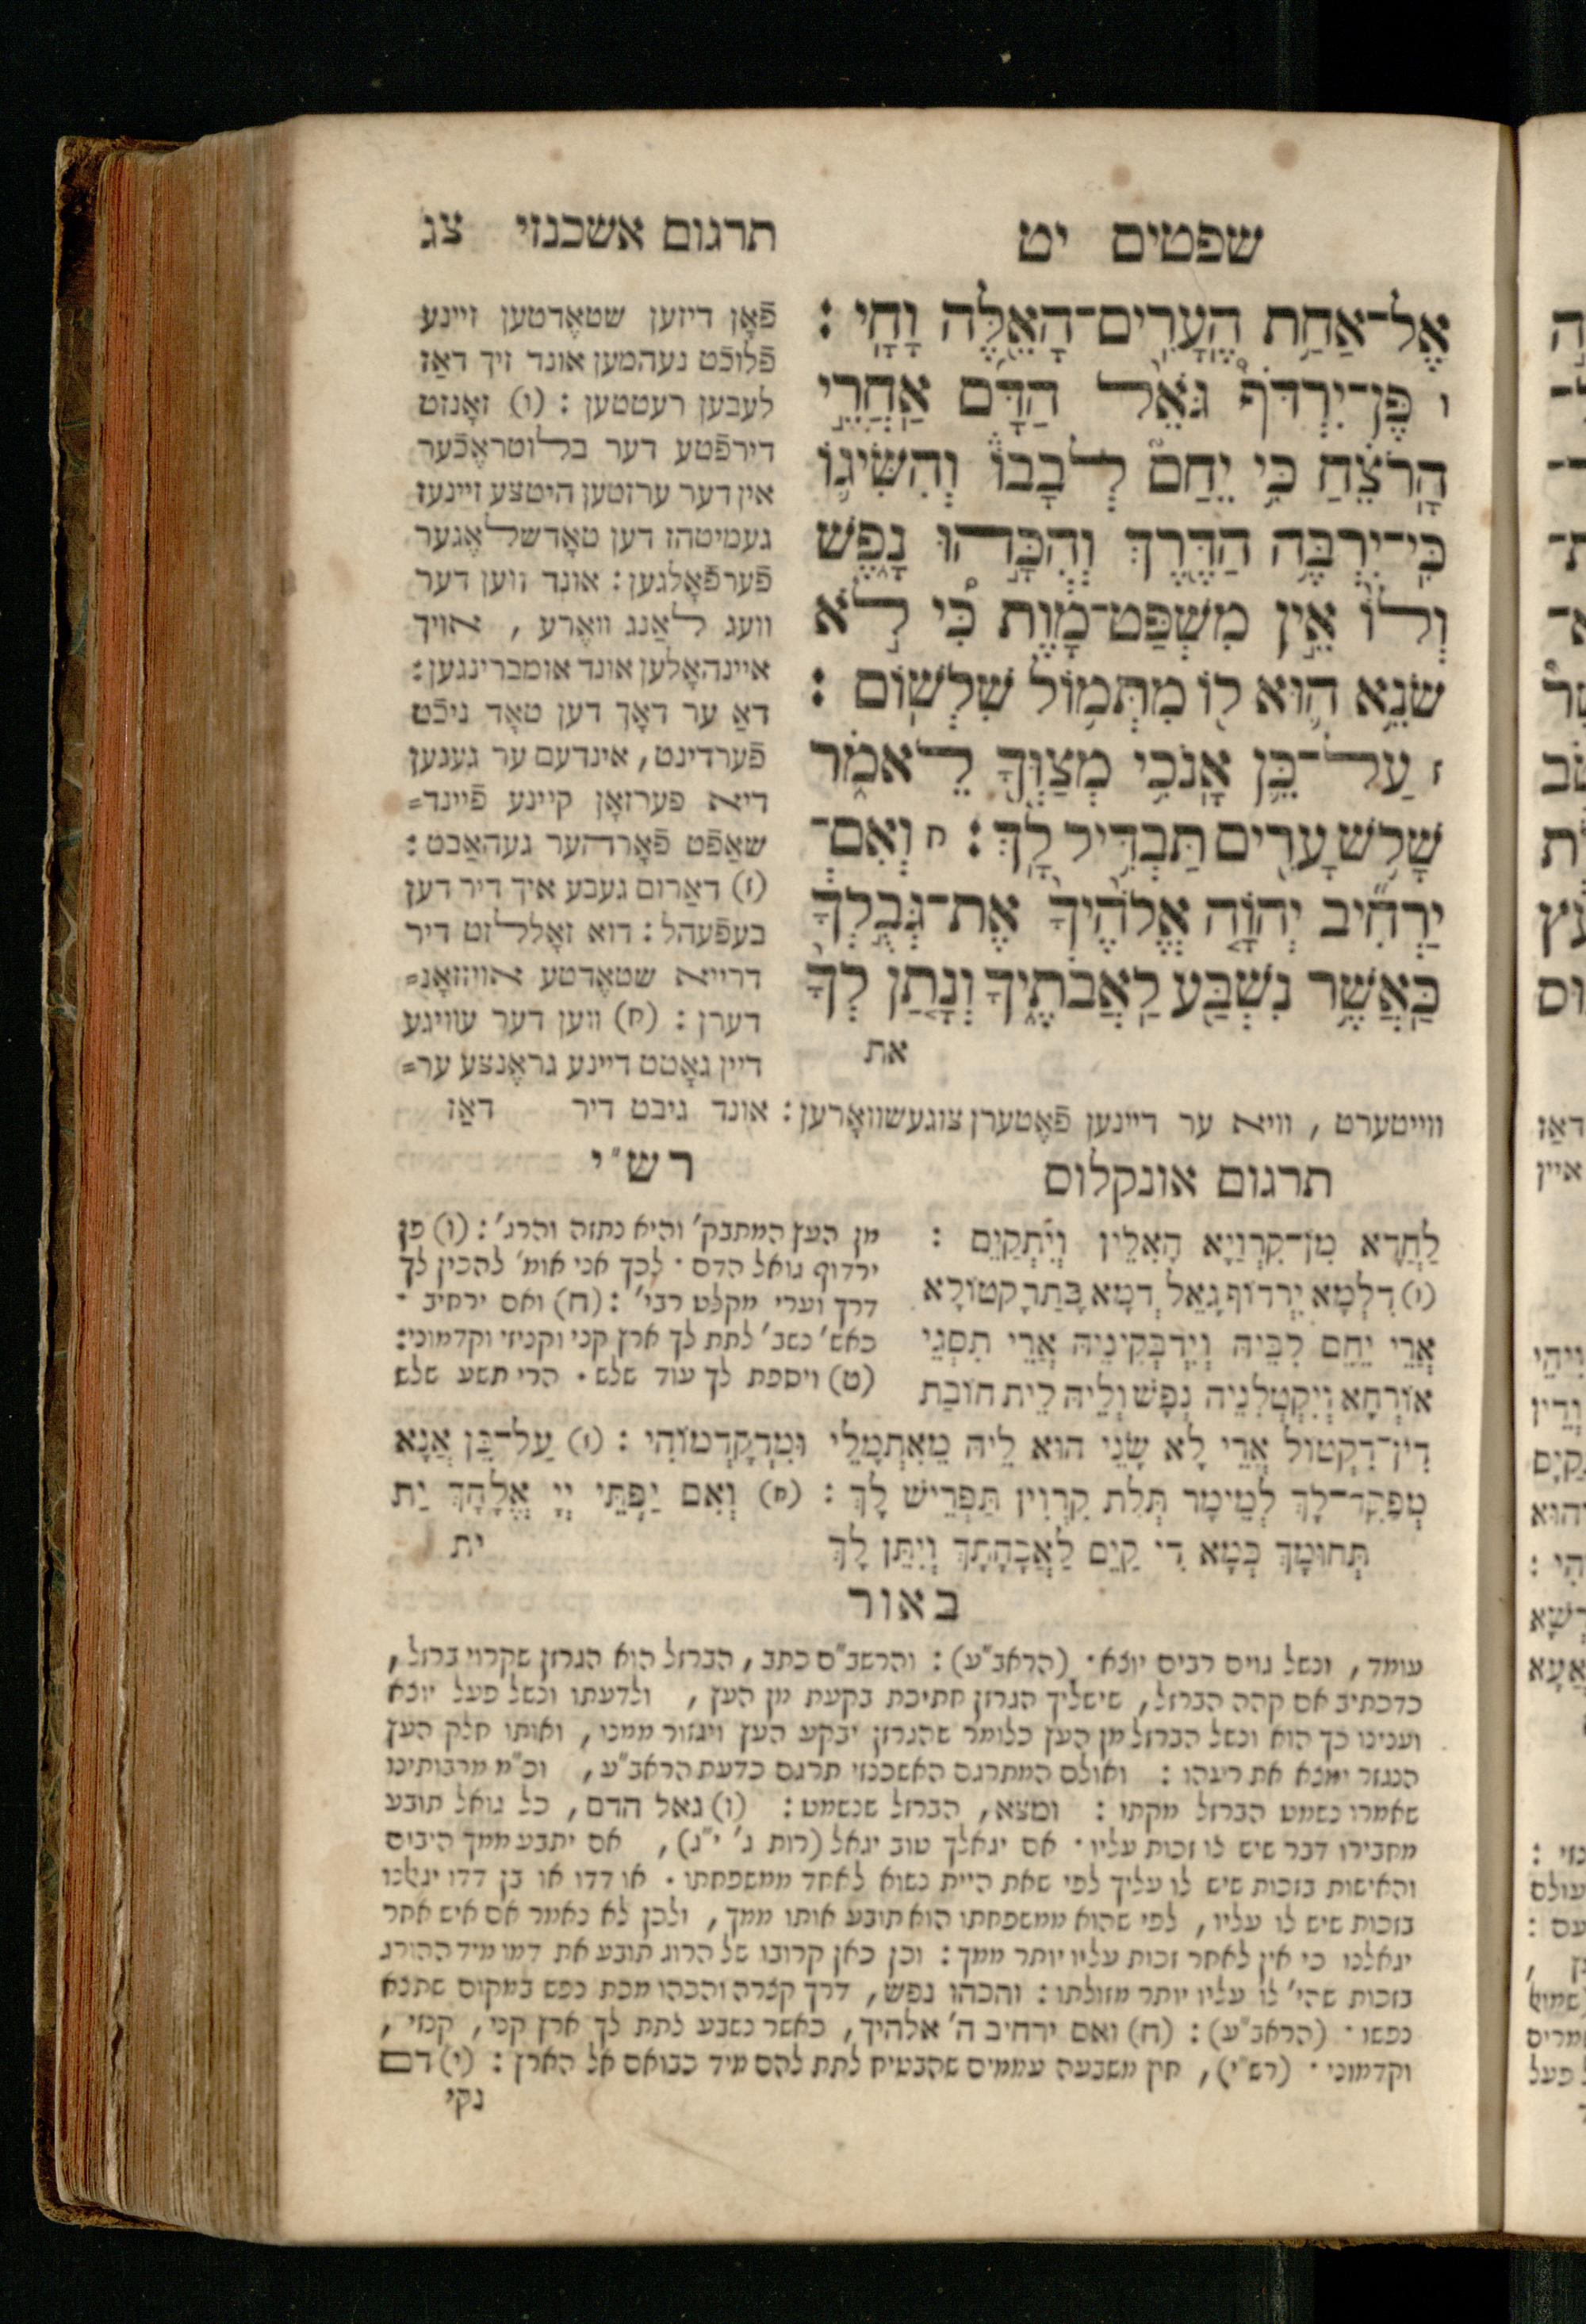 שפטים יט
תרגום אשכנזי צג
אֶל־אַחַ֛ת הֶעָרִ֥ים־הָאֵ֖לֶּה וָחָֽי :
ו פֶּן־יִרְדֹּף֩ גֹּאֵ֨ל הַדָּ֜ם אַחֲרֵ֣י
הָרֹצֵ֗חַ כִּ֣י יֵחַם֮ לְבָבוֹ֒ וְהִשִּׂיג֛וֹ
כִּֽי־יִרְבֶּ֥ה הַדֶּ֖רֶךְ וְהִכָּ֣הוּ נָ֑פֶשׁ
וְלוֹ֙ אֵ֣ין מִשְׁפַּט־מָ֔וֶת כִּ֠י לֹ֣א
שֹׂנֵ֥א ה֛וּא ל֖וֹ מִתְּמ֥וֹל שִׁלְשֽׁוֹם :
ז עַל־כֵּ֛ן אָנֹכִ֥י מְצַוְּךָ֖ לֵאמֹ֑ר
שָׁלֹ֥שׁ עָרִ֖ים תַּבְדִּ֥יל לָֽךְ : ח וְאִם־
יַרְחִ֞יב יְהוָ֤ה אֱלֹהֶ֙יךָ֙ אֶת־גְּבֻ֣לְךָ֔
כַּאֲשֶׁ֥ר נִשְׁבַּ֖ע לַאֲבֹתֶ֑יךָ וְנָ֤תַן לְךָ֙
את
פֿאָן דיזען שטאֶדטען זיינע
פֿלוכֿט נעהמען אונד זיך דאַז
לעבען רעטטען : (ו) זאָנזט
דירפֿטע דער בלוטראֶכֿער
אין דער ערזטען היטצע זיינעז
געמיטהז דען טאָדשלאֶגער
פֿערפֿאָלגען : אונד ווען דער
וועג לאַנג וואֶרע , אויך
איינהאָלען אונד אומברינגען :
דאַ ער דאָך דען טאָד ניכֿט
פֿערדינט, אינדעם ער געגען
דיא פערזאָן קיינע פֿיינד=
שאַפֿט פֿאָרהער געהאַבט :
(ז) דאַרום געבע איך דיר דען
בעפֿעהל : דוא זאָללזט דיר
דרייא שטאֶדטע אויזזאָנ=
דערן : (ח) ווען דער עוויגע
דיין גאָטט דיינע גראֶנצע ער=
ווייטערט , וויא ער דיינען פֿאֶטערן צוגעשוואָרען : אונד גיבט דיר דאַז
תרגום אונקלוס
לַחֲדָא מִן־קִרְוַיָּא הָאִלֵּין וְיִתְקַיֵּם :
(ו) דִּלְמָא יִרְדּוֹף גָּאֵל דְּמָא בָּתַר קָטוֹלָא
אֲרֵי יֵחַם לִבֵּיהּ וְיַדְבְּקִינֵיהּ אֲרֵי תִסְגֵּי
אוֹרְחָא וְיִקְטְלִנֵּיהּ נְפָשׁ וְלֵיהּ לֵית חוֹבַת
דִּין־דִּקְטוֹל אֲרֵי לָא שָׂנֵי הוּא לֵיהּ מֵאִתְמָלֵי וּמִדְּקָדְמוֹהִי : (ז) עַל־כֵּן אֲנָא
מְפַקֵּד־לָךְ לְמֵימָר תְּלָת קִרְוִין תַּפְרֵישׁ לָךְ : (ח) וְאִם יַפְתֵּי יְיָ אֱלָהָךְ יַת
תְּחוּמָךְ כְּמָא דִי קַיֵּם לַאֲבָהָתָךְ וְיִתֵּן לָךְ ית
רש"י
מן העץ המתבק' והיא נתזה והרג' : (ו) פן
ירדוף גואל הדם · לכך אני אומ' להכין לך
דרך וערי מקלט רבי' : (ח) ואם ירחיב ·
כאש' נשב' לתת לך ארץ קני וקניזי וקדמוני :
(ט) ויספת לך עוד שלש · הרי תשע שלש
באור
עומד, ונשל גוים רבים יוצא · (הראב"ע) : והרשב"ם כתב, הברזל הוא הגרזן שקרוי ברזל,
כדכתיב אם קהה הברזל, שישליך הגרזן חתיכת בקעת מן העץ, ולדעתו ונשל פעל יוצא
וענינו כך הוא ונשל הברזל מן העץ כלומר שהגרזן יבקע העץ ויגזור ממנו, ואותו חלק העץ
הנגזר ימצא את רעהו : ואולם המתרגם האשכנזי תרגם כדעת הראב"ע, וכ"מ מרבותינו
שאמרו נשמט הברזל מקתו : ומצא, הברזל שנשמט : (ו) גאל הדם, כל גואל תובע
מחבירו דבר שיש לו זכות עליו · אם יגאלך טוב יגאל (רות ג' י"ג), אם יתבע ממך היבום
והאישות בזכות שיש לו עליך לפי שאת היית נשוא לאחד ממשפחתו · או דדו או בן דדו יגאלנו
בזכות שיש לו עליו, לפי שהוא ממשפחתו הוא תובע אותו ממך, ולכן לא נאמר אם איש אחר
יגאלנו כי אין לאחר זכות עליו יותר ממך : וכן כאן קרובו של הרוג תובע את דמו מיד ההורג
בזכות שהי' לו עליו יותר מזולתו : והכהו נפש, דרך קצרה והכהו מכת נפש במקום שתצא
נפשו · (הראב"ע) : (ח) ואם ירחיב ה' אלהיך, כאשר נשבע לתת לך ארץ קני, קנזי,
וקדמוני · (רש"י), חוץ משבעה עממים שהבטיח לתת להם מיד בבואם אל הארץ : (י) דם
נקי